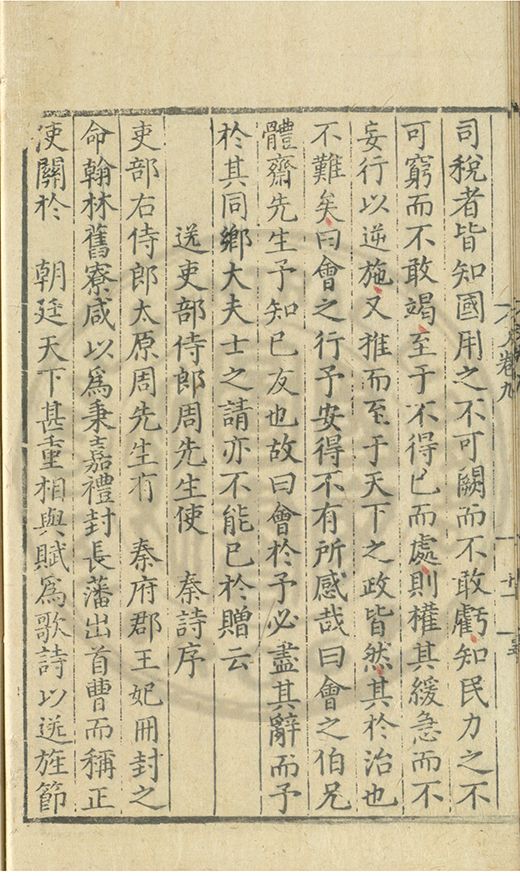 司稅者皆知國用之不可闕而不敢虧知民力之不
可窮而不敢竭至于不得已而處則權其緩急而不
妄行以逆施又推而至于天下之政皆然其於治也
不難矣曰會之行予安得不有所感哉曰會之伯兄
體齋先生予知已友也故曰會於予必盡其辭而予
於其同鄉大夫士之請亦不能已於贈云
送吏部侍郎周先生使 秦詩序
吏部右侍郎太原周先生有 秦府郡王妃冊封之
命翰林舊寮咸以爲秉嘉禮封長藩出首曹而稱正
使關於 朝廷天下甚重相與賦爲歌詩以送旌節
卷九